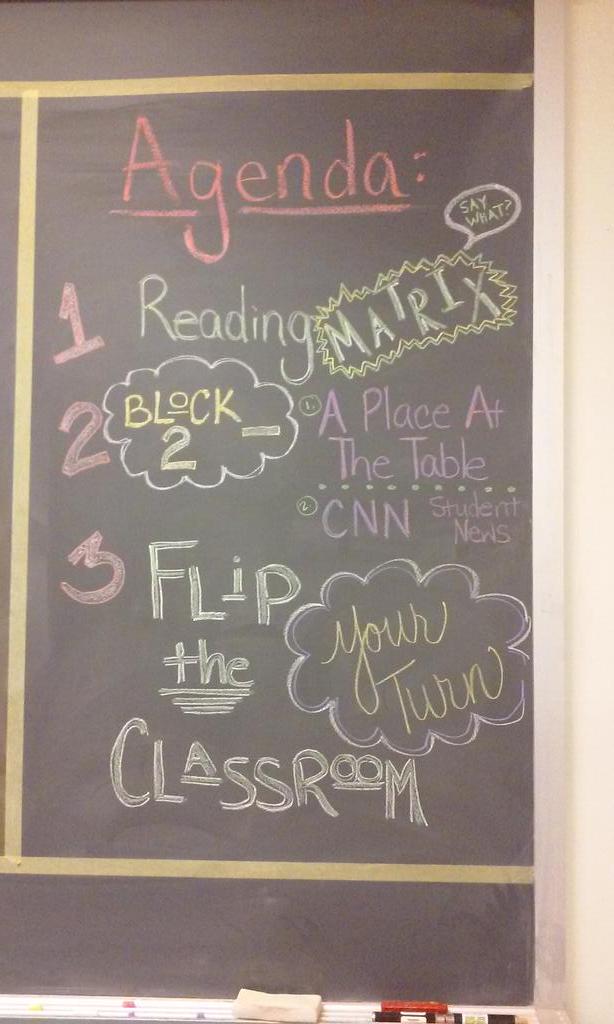 Agenda:
SAY
WHAT?
1 Reading MATRIX
2 BLOCK
2 –
1. A Place At
The Table
2. CNN Student
News
3 FLiP
the
CLASSROOM
Your
Turn